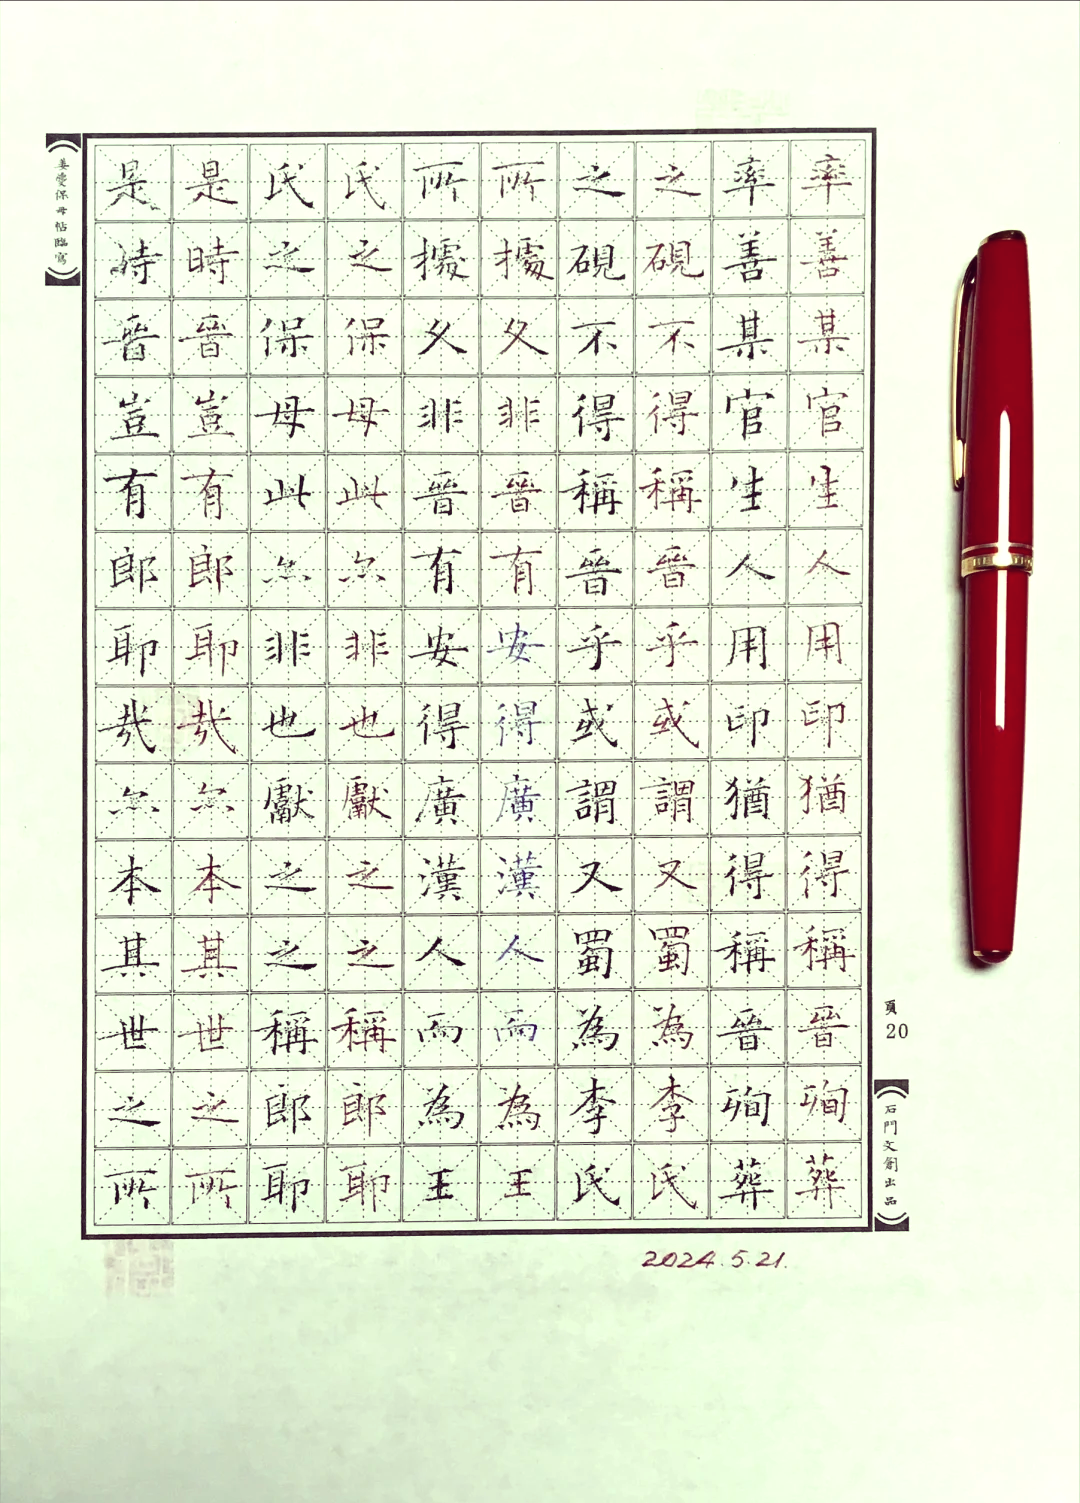 率善某官生人用印猶得稱晉殉葬
率善某官生人用印猶得稱晉殉葬
之硯不得稱晉乎或謂又蜀為李氏
之硯不得稱晉乎或謂又蜀為李氏
所據久非晉有安得廣漢人而為王
所據久非晉有安得廣漢人而為王
氏之保母此尒非也獻之之稱郎耶
氏之保母此尒非也獻之之稱郎耶
是時晉豈有郎耶哉尒本其世之所
是時晉豈有郎耶哉尒本其世之所
姜夔保母帖臨寫
頁20
石門文創出品
2024.5.21.